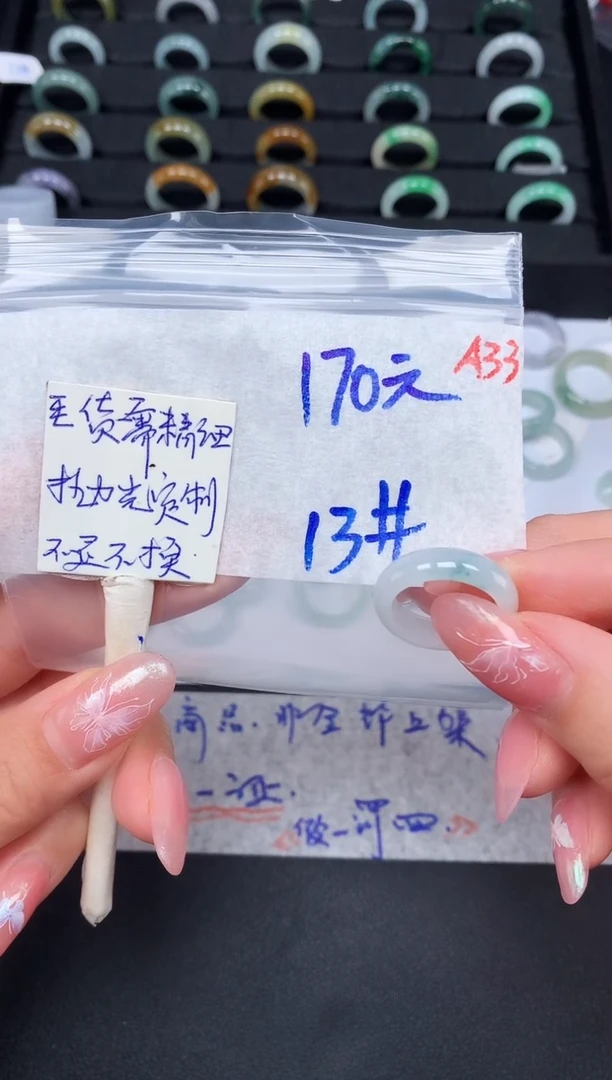 170元
A33
毛货需精细
抛光定制
不退不换
13#
商品.非全部上架
一证.
假一罚四